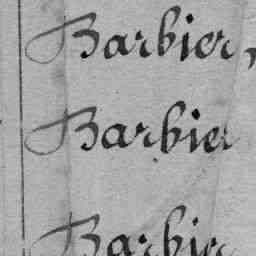 Barbier,
Barbier
Barbier